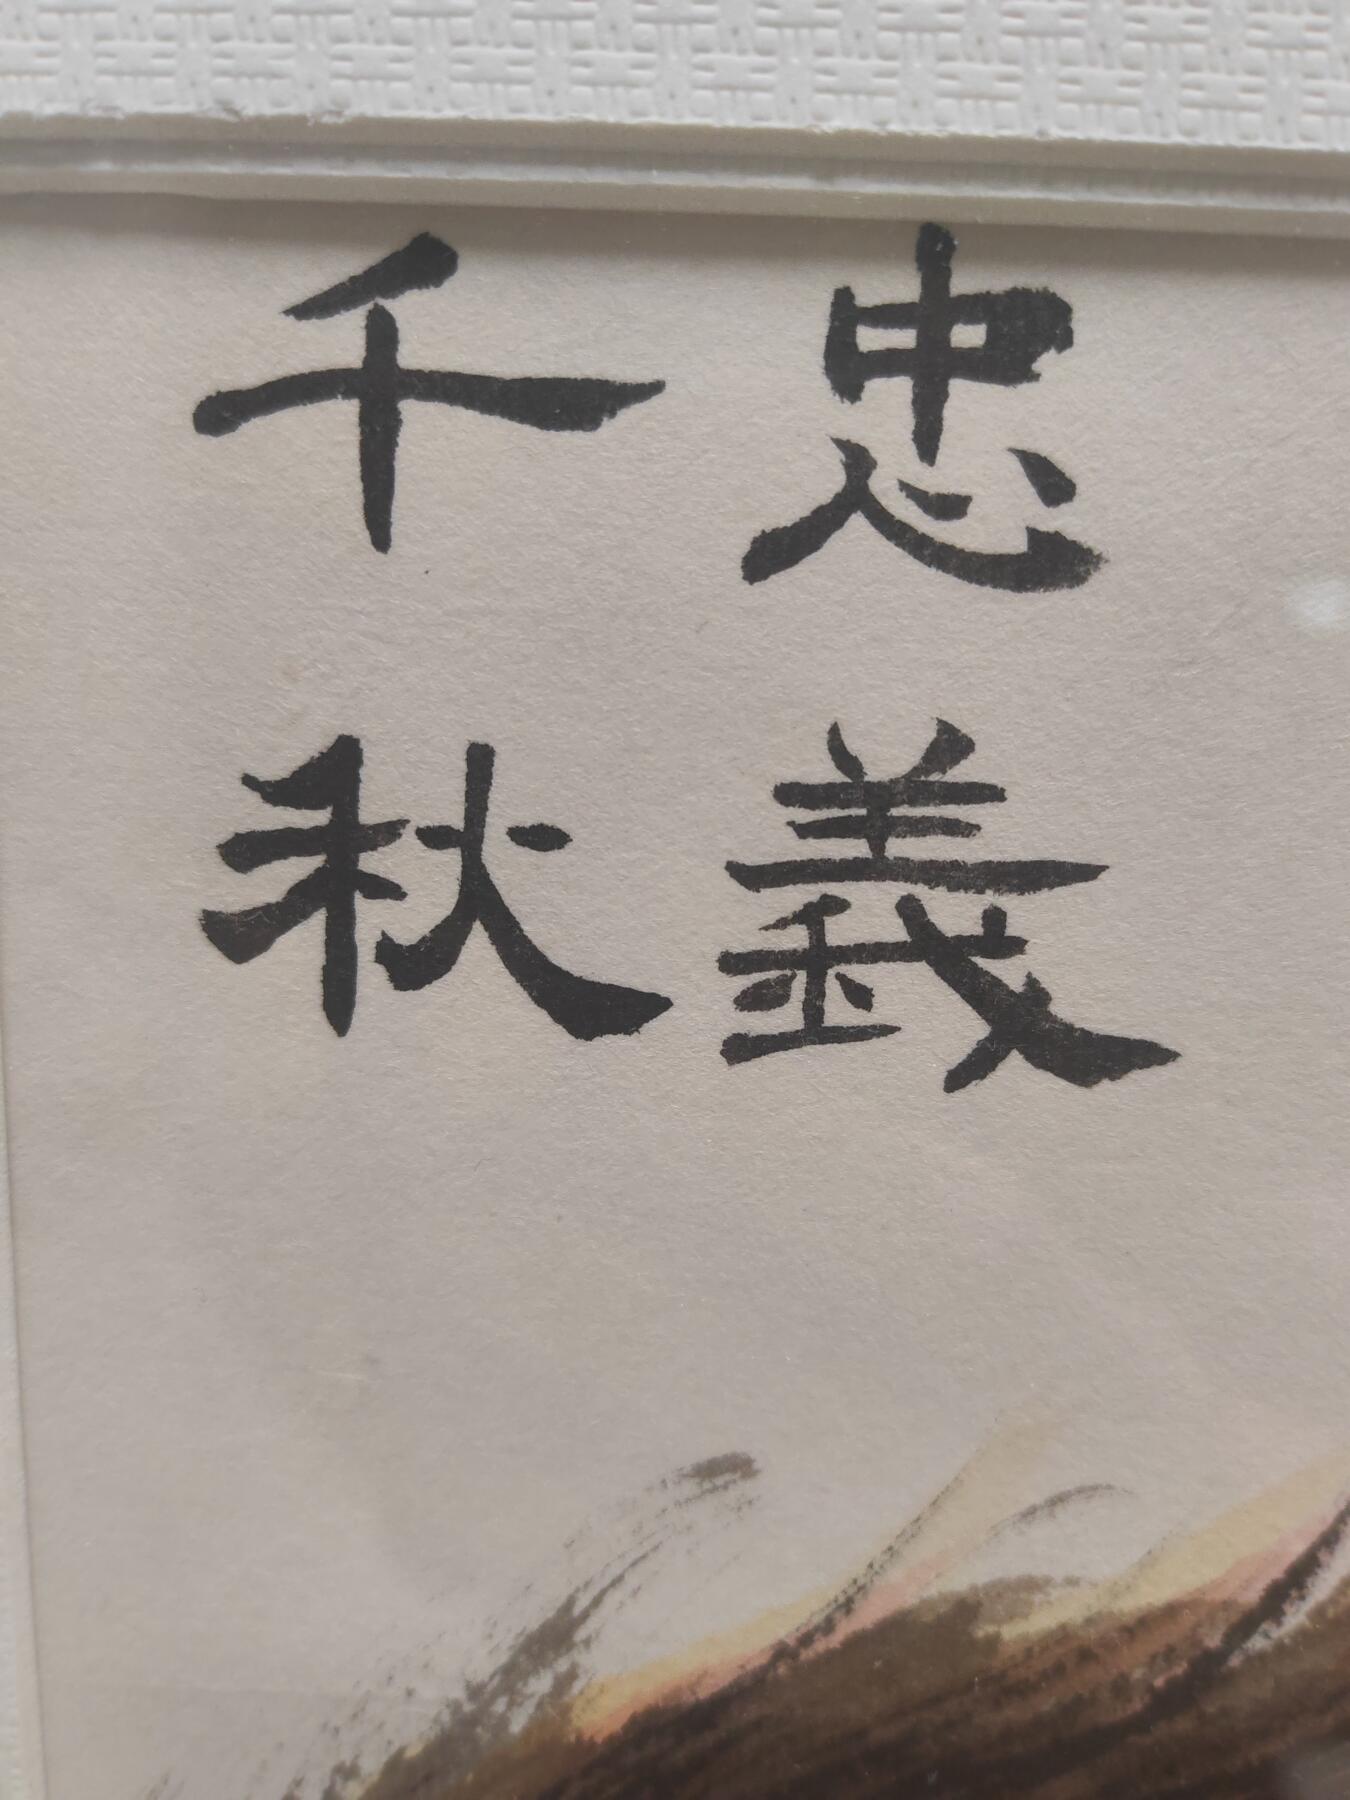 忠義
千秋